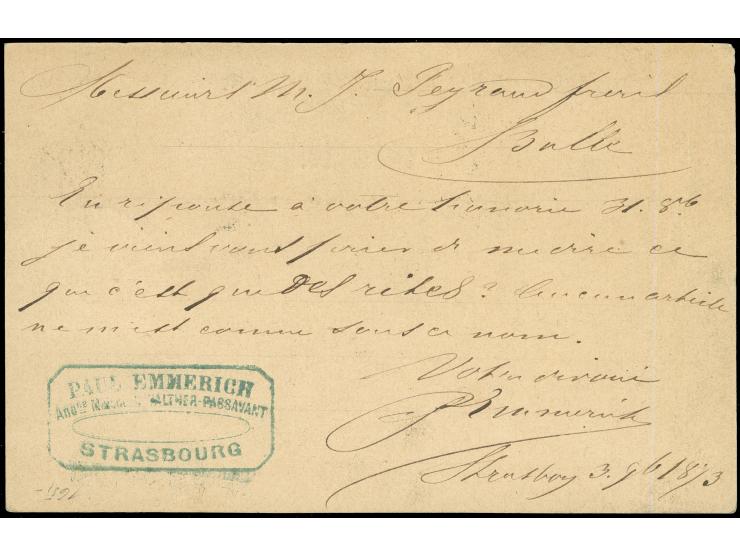 Messieurs M. J. Peyraud frères
Bulle
En réponse à votre honorée 31. 8b.
je viens vous prier de me dire ce
que c'est que Des rites? Aucun article
ne m'est connu sous ce nom.
Votre dévoué
P Emmerich
Strasbg 3. 9b 1873
PAUL EMMERICH
WALTHER-PASSAVANT
STRASBOURG